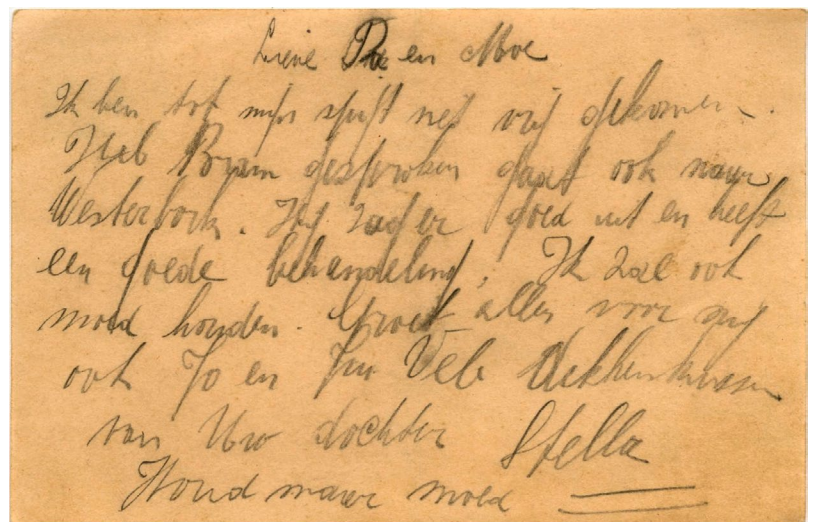 Lieve Pa en Moe
Ik ben tot mijn spijt niet vrij gekomen.
Heb Bram gesproken gaat ook naar
Westerbork. Hij zag er goed uit en heeft
een goede behandeling. Ik zal ook
moed houden. Groet allen voor mij
ook Jo en Veel
van Uw dochter Stella
Houd maar moed